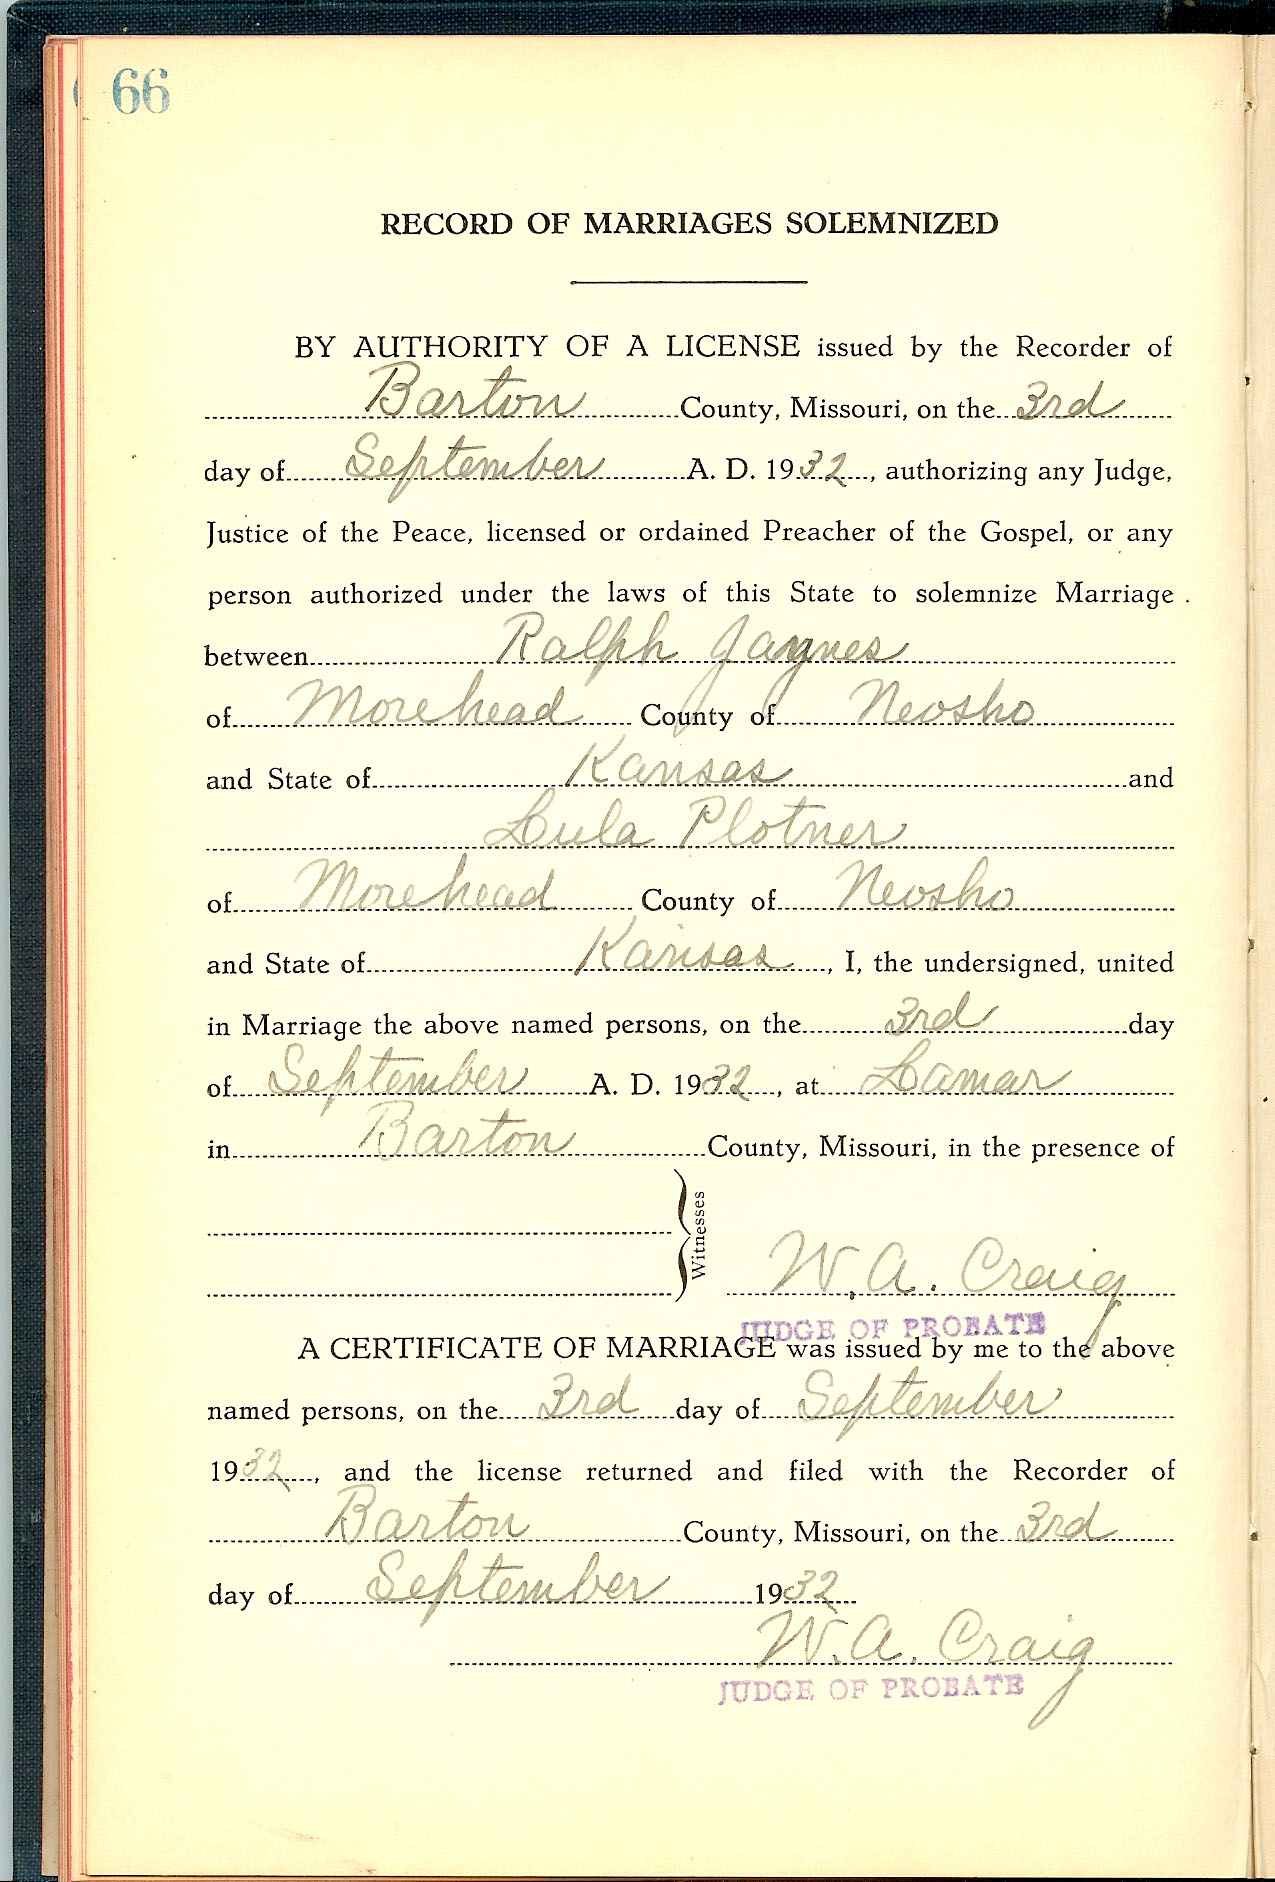 66
RECORD OF MARRIAGES SOLEMNIZED
BY AUTHORITY OF A LICENSE issued by the Recorder of
Barton County, Missouri, on the 3rd
day of September A. D. 1932, authorizing any Judge,
Justice of the Peace, licensed or ordained Preacher of the Gospel, or any
person authorized under the laws of this State to solemnize Marriage.
between Ralph Jaynes
of Morehead County of Neosho
and State of Kansas and
Lula Plotner
of Morehead County of Neosho
and State of Kansas, I, the undersigned, united
in Marriage the above named persons, on the 3rd day
of September A. D. 1932, at Lamar
in Barton County, Missouri, in the presence of
Witnesses
W. A. Craig
JUDGE OF PROBATE
A CERTIFICATE OF MARRIAGE was issued by me to the above
named persons, on the 3rd day of September
1932, and the license returned and filed with the Recorder of
Barton County, Missouri, on the 3rd
day of September 1932
W. A. Craig
JUDGE OF PROBATE